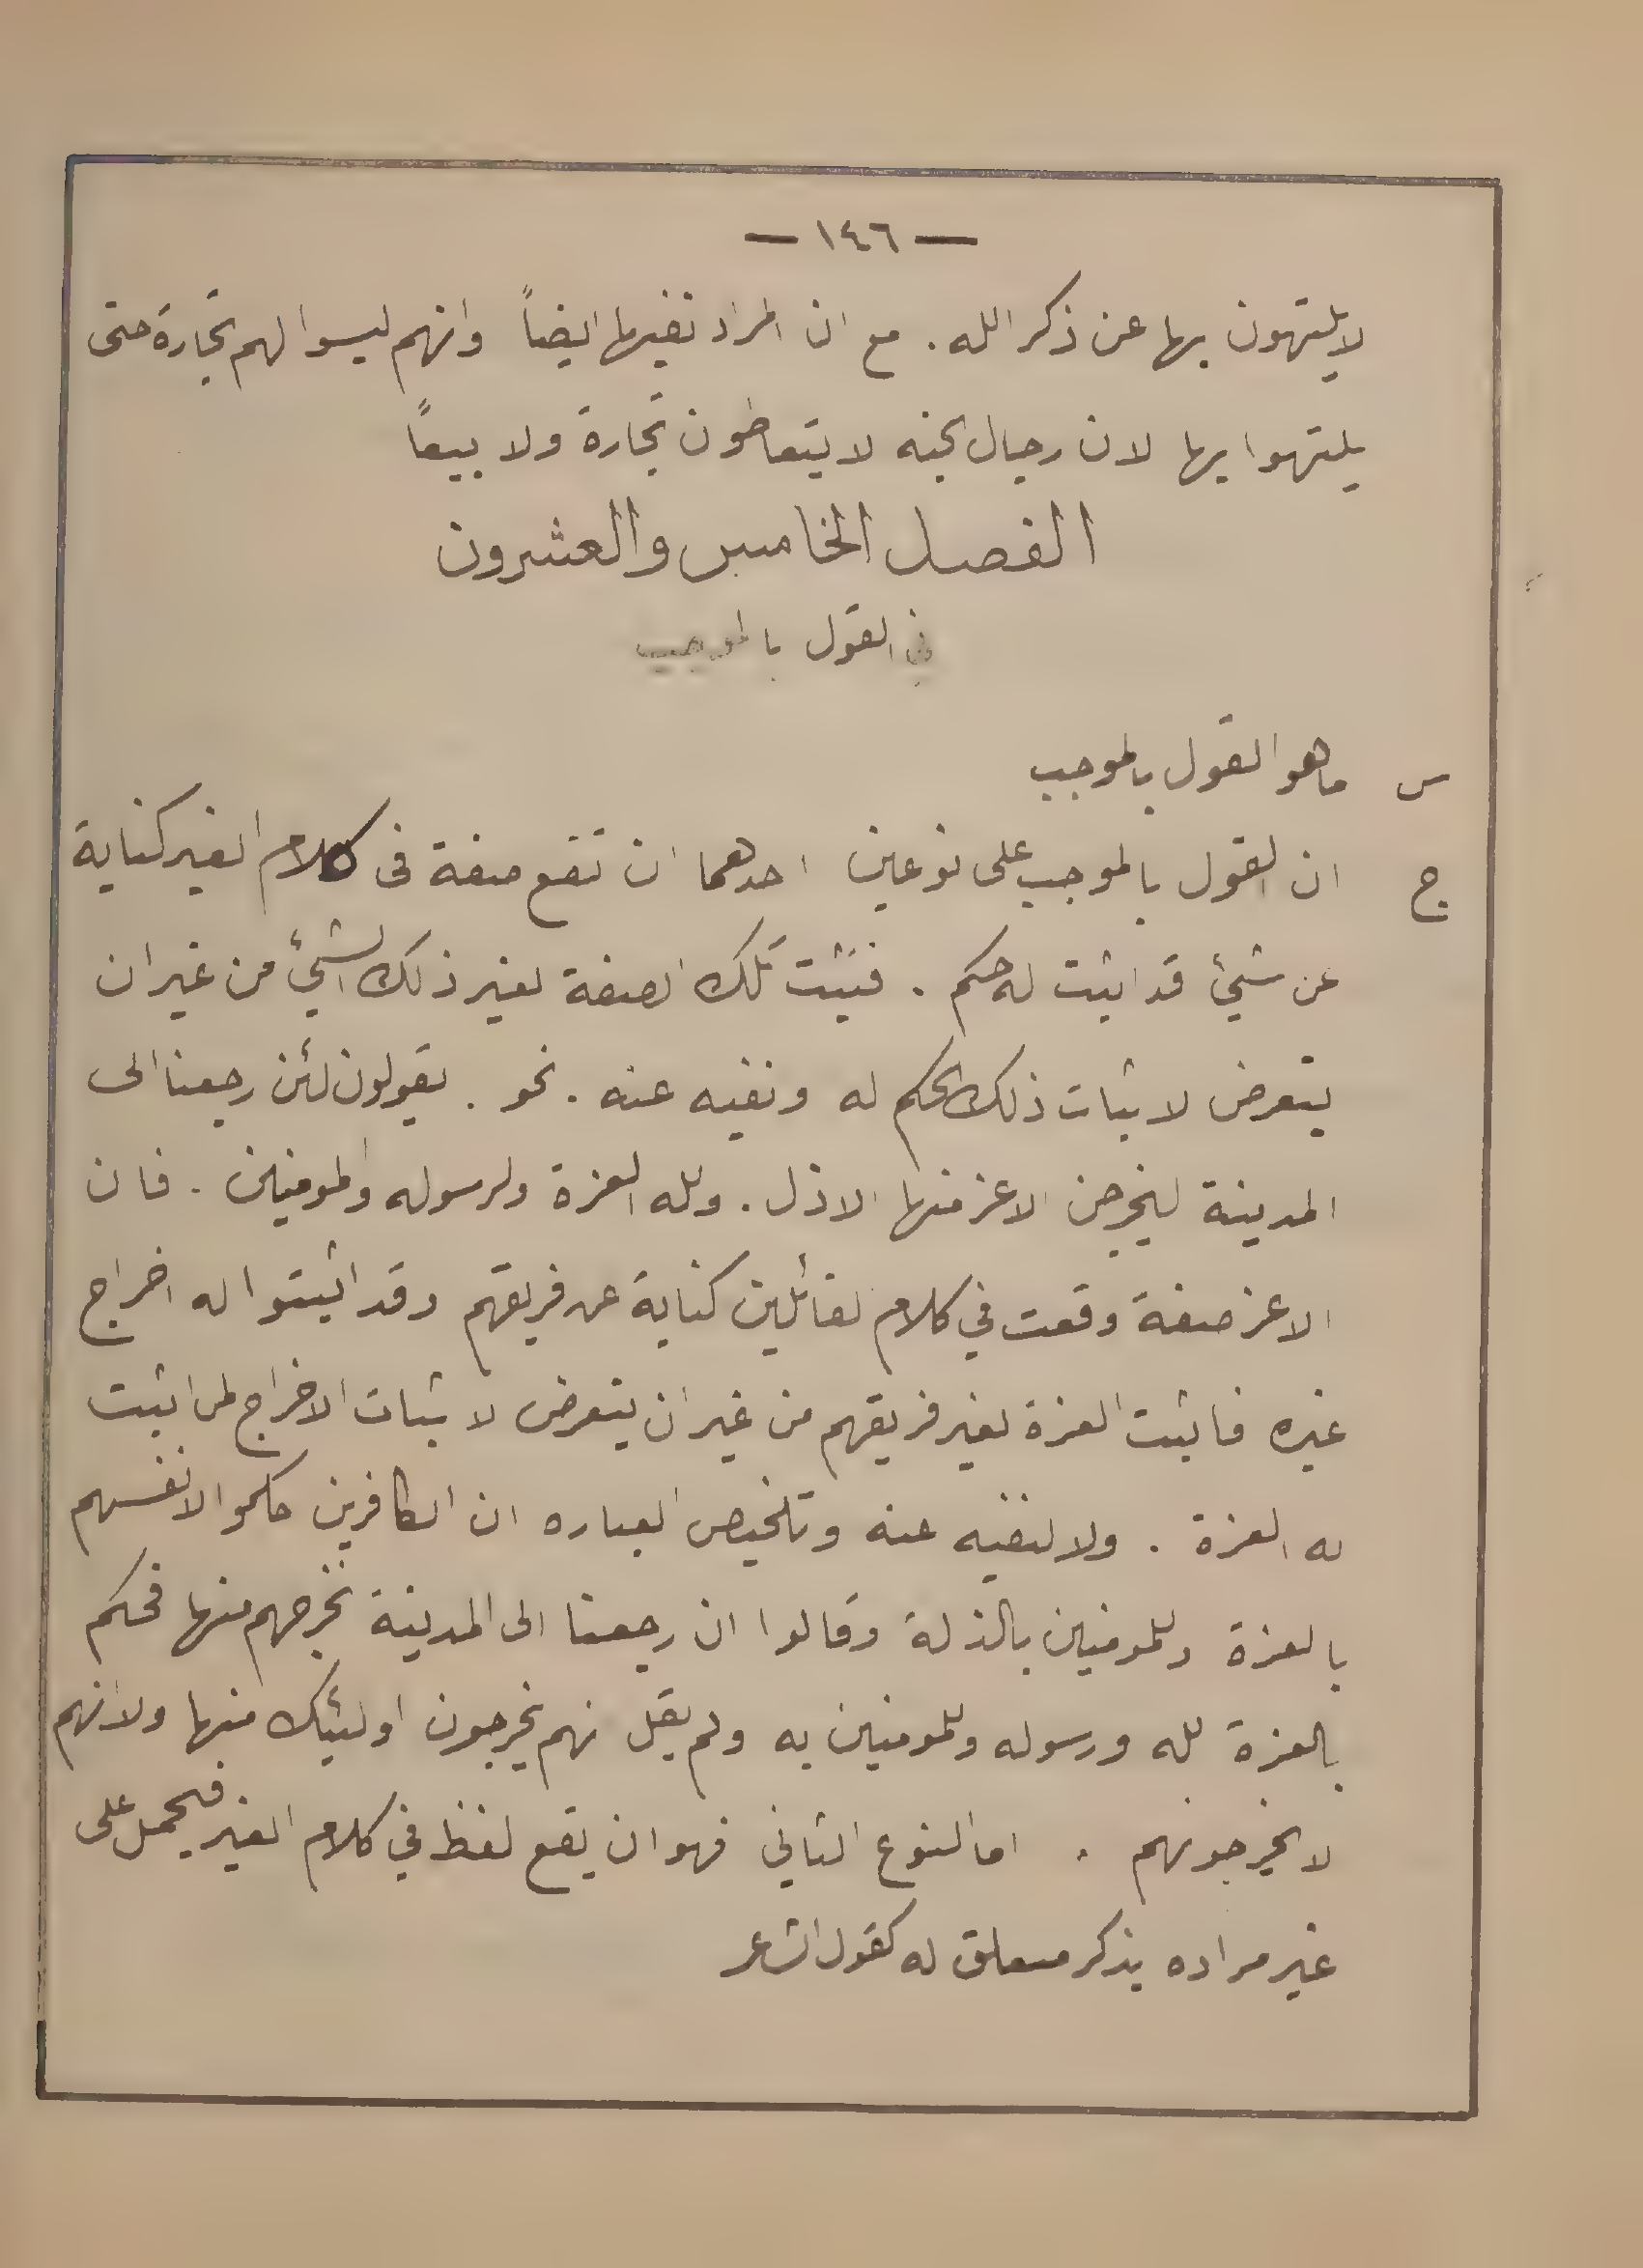 — ١٤٦ —
لا يلتهون بها عن ذكر الله . مع ان المراد نفيها ايضاً وانهم ليسوا لهم تجارة حتى
يلتهوا بها لان رجال الجنه لا يتعاطون تجارة ولا بيعاً
الفصل الخامس والعشرون
في القول بالموجب
س ما هو القول بالموجب
ج ان القول بالموجب على نوعين احدهما ان تقع صفة فى كلام الغير كناية
عن شيئ قد اثبت له حكم . فتثبت تلك الصفة لغير ذلك الشيئ من غير ان
يتعرض لاثبات ذلك الحكم له ونفيه عنه . نحو . يقولون لئن رجعنا الى
المدينة ليخرجن الاعز منها الاذل . ولله العزة ولرسوله والمومنين . فان
الاعز صفة وقعت في كلام القائلين كناية عن فريقهم وقد اثبتوا له اخراج
غيره فاثبت العزة لغير فريقهم من غير ان يتعرض لاثبات الاخراج لمن اثبت
له العزة . ولا لنفيه عنه وتلخيص العباره ان الكافرين حكموا لانفسهم
بالعزة وللمومنين بالذلة وقالوا ان رجعنا الى المدينة نخرجهم منها فحكم
بالعزة لله ورسوله وللمومنين به ولم يقل انهم يخرجون اوليئك منها ولا انهم
لا يخرجونهم . اما النوع الثاني فهو ان يقع لفظ في كلام الغير فيحمل على
غير مراده بذكر متعلق له كقول الشاعر